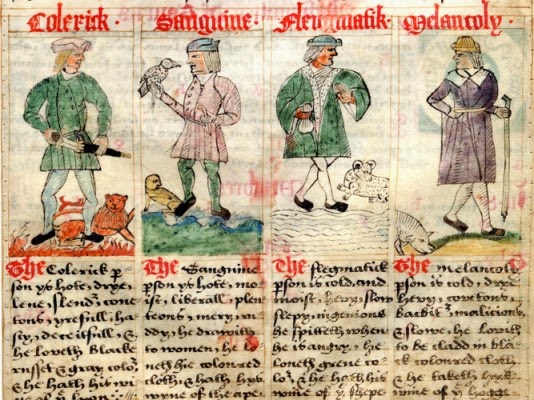 Colerick · Sanguine · Flewmatik · Melancoly ·
The Colerick p̄
son ys hote, drye,
lene, slender, coue
tous, yrefull, ha
sty, deceitfull, &
he loveth blacke
russet & gray colo
& he hath his wi
ne of yᵉ lyon
The Sanguine
p̄son ys hote, mo
ist, liberall, plen
teous, mery, ru
ddy, he drawith
to women, he lo
neth hie coloured
cloth, & hath hys
wyne of the ape
The flegmatik
p̄son is cold, and
moist, hevy, slow
slepy, ingenious
he spitteth when
he is angry, he
loueth grene co
loʳ, & he hath his
wine of yᵉ shepe
The melancoly
p̄son is cold, drye
hevy, covetous,
Bacbit, malicious,
& slowe, he loveth
to be cladd in bla
ck coloured cloth
& he taketh hys
wine of yᵉ hogge